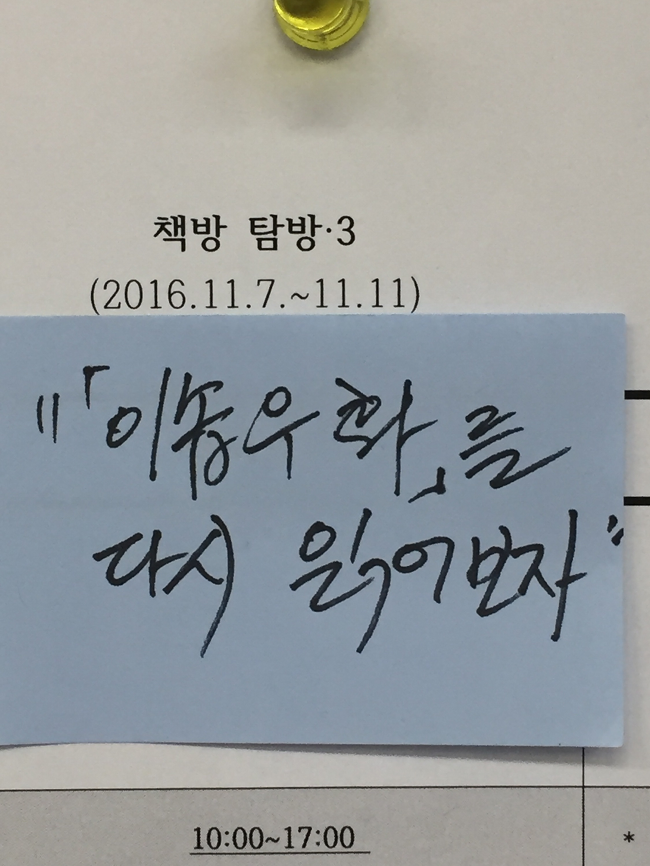 책방 탐방·3
(2016.11.7.~11.11)
"「이솝우화」를
다시 읽어보자"
10:00~17:00
*